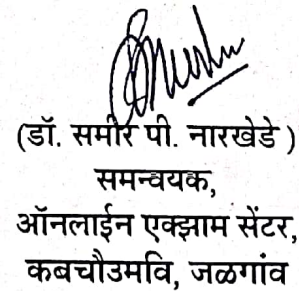 (डॉ. समीर पी. नारखेडे )
समन्वयक,
ऑनलाईन एक्झाम सेंटर,
कबचौउमवि, जळगांव